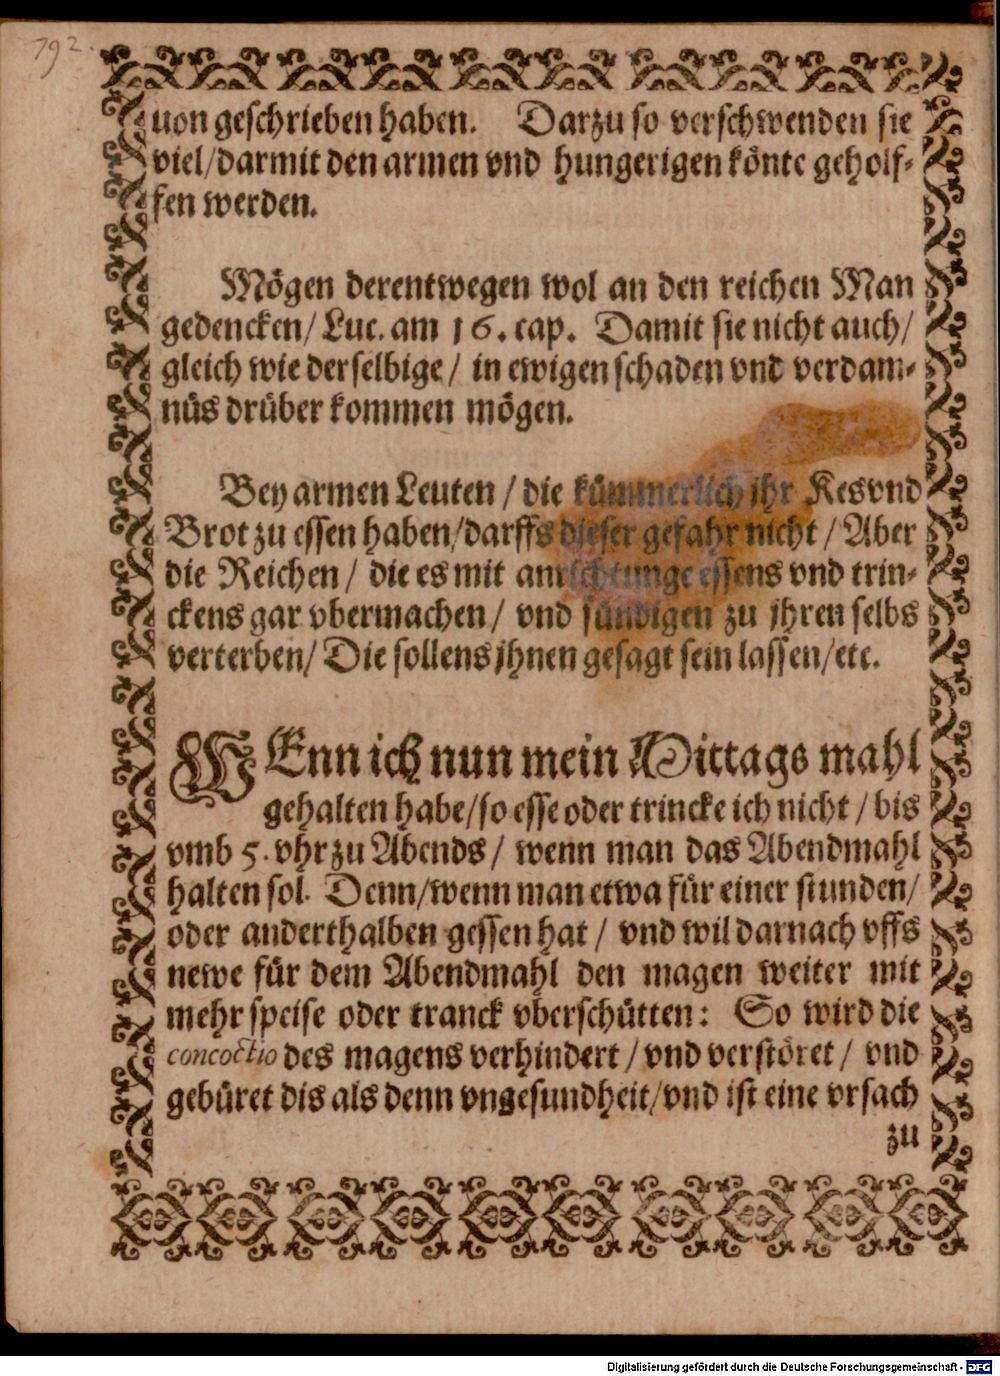 792.
uon geschrieben haben. Darzu so verschwenden sie
viel/darmit den armen vnd hungerigen könte geholf-
fen werden.
Mögen derentwegen wol an den reichen Man
gedencken/ Luc. am 16. cap. Damit sie nicht auch/
gleich wie derselbige / in ewigen schaden vnd verdam-
nüs drüber kommen mögen.
Bey armen Leuten / die kümmerlich jhr Kes vnd
Brot zu essen haben/darffs dieser gefahr nicht / Aber
die Reichen / die es mit anrichtunge essens vnd trin-
ckens gar vbermachen / vnd sündigen zu jhren selbs
verterben/ Die sollens jhnen gesagt sein lassen/etc.
WEnn ich nun mein Mittags mahl
gehalten habe/so esse oder trincke ich nicht / bis
vmb 5. vhr zu Abends / wenn man das Abendmahl
halten sol. Denn/wenn man etwa für einer stunden/
oder anderthalben gessen hat / vnd wil darnach vffs
newe für dem Abendmahl den magen weiter mit
mehr speise oder tranck vberschütten: So wird die
concoctio des magens verhindert / vnd verstöret / vnd
gebüret dis als denn vngesundheit/vnd ist eine vrsach
zu
Digitalisierung gefördert durch die Deutsche Forschungsgemeinschaft - DFG